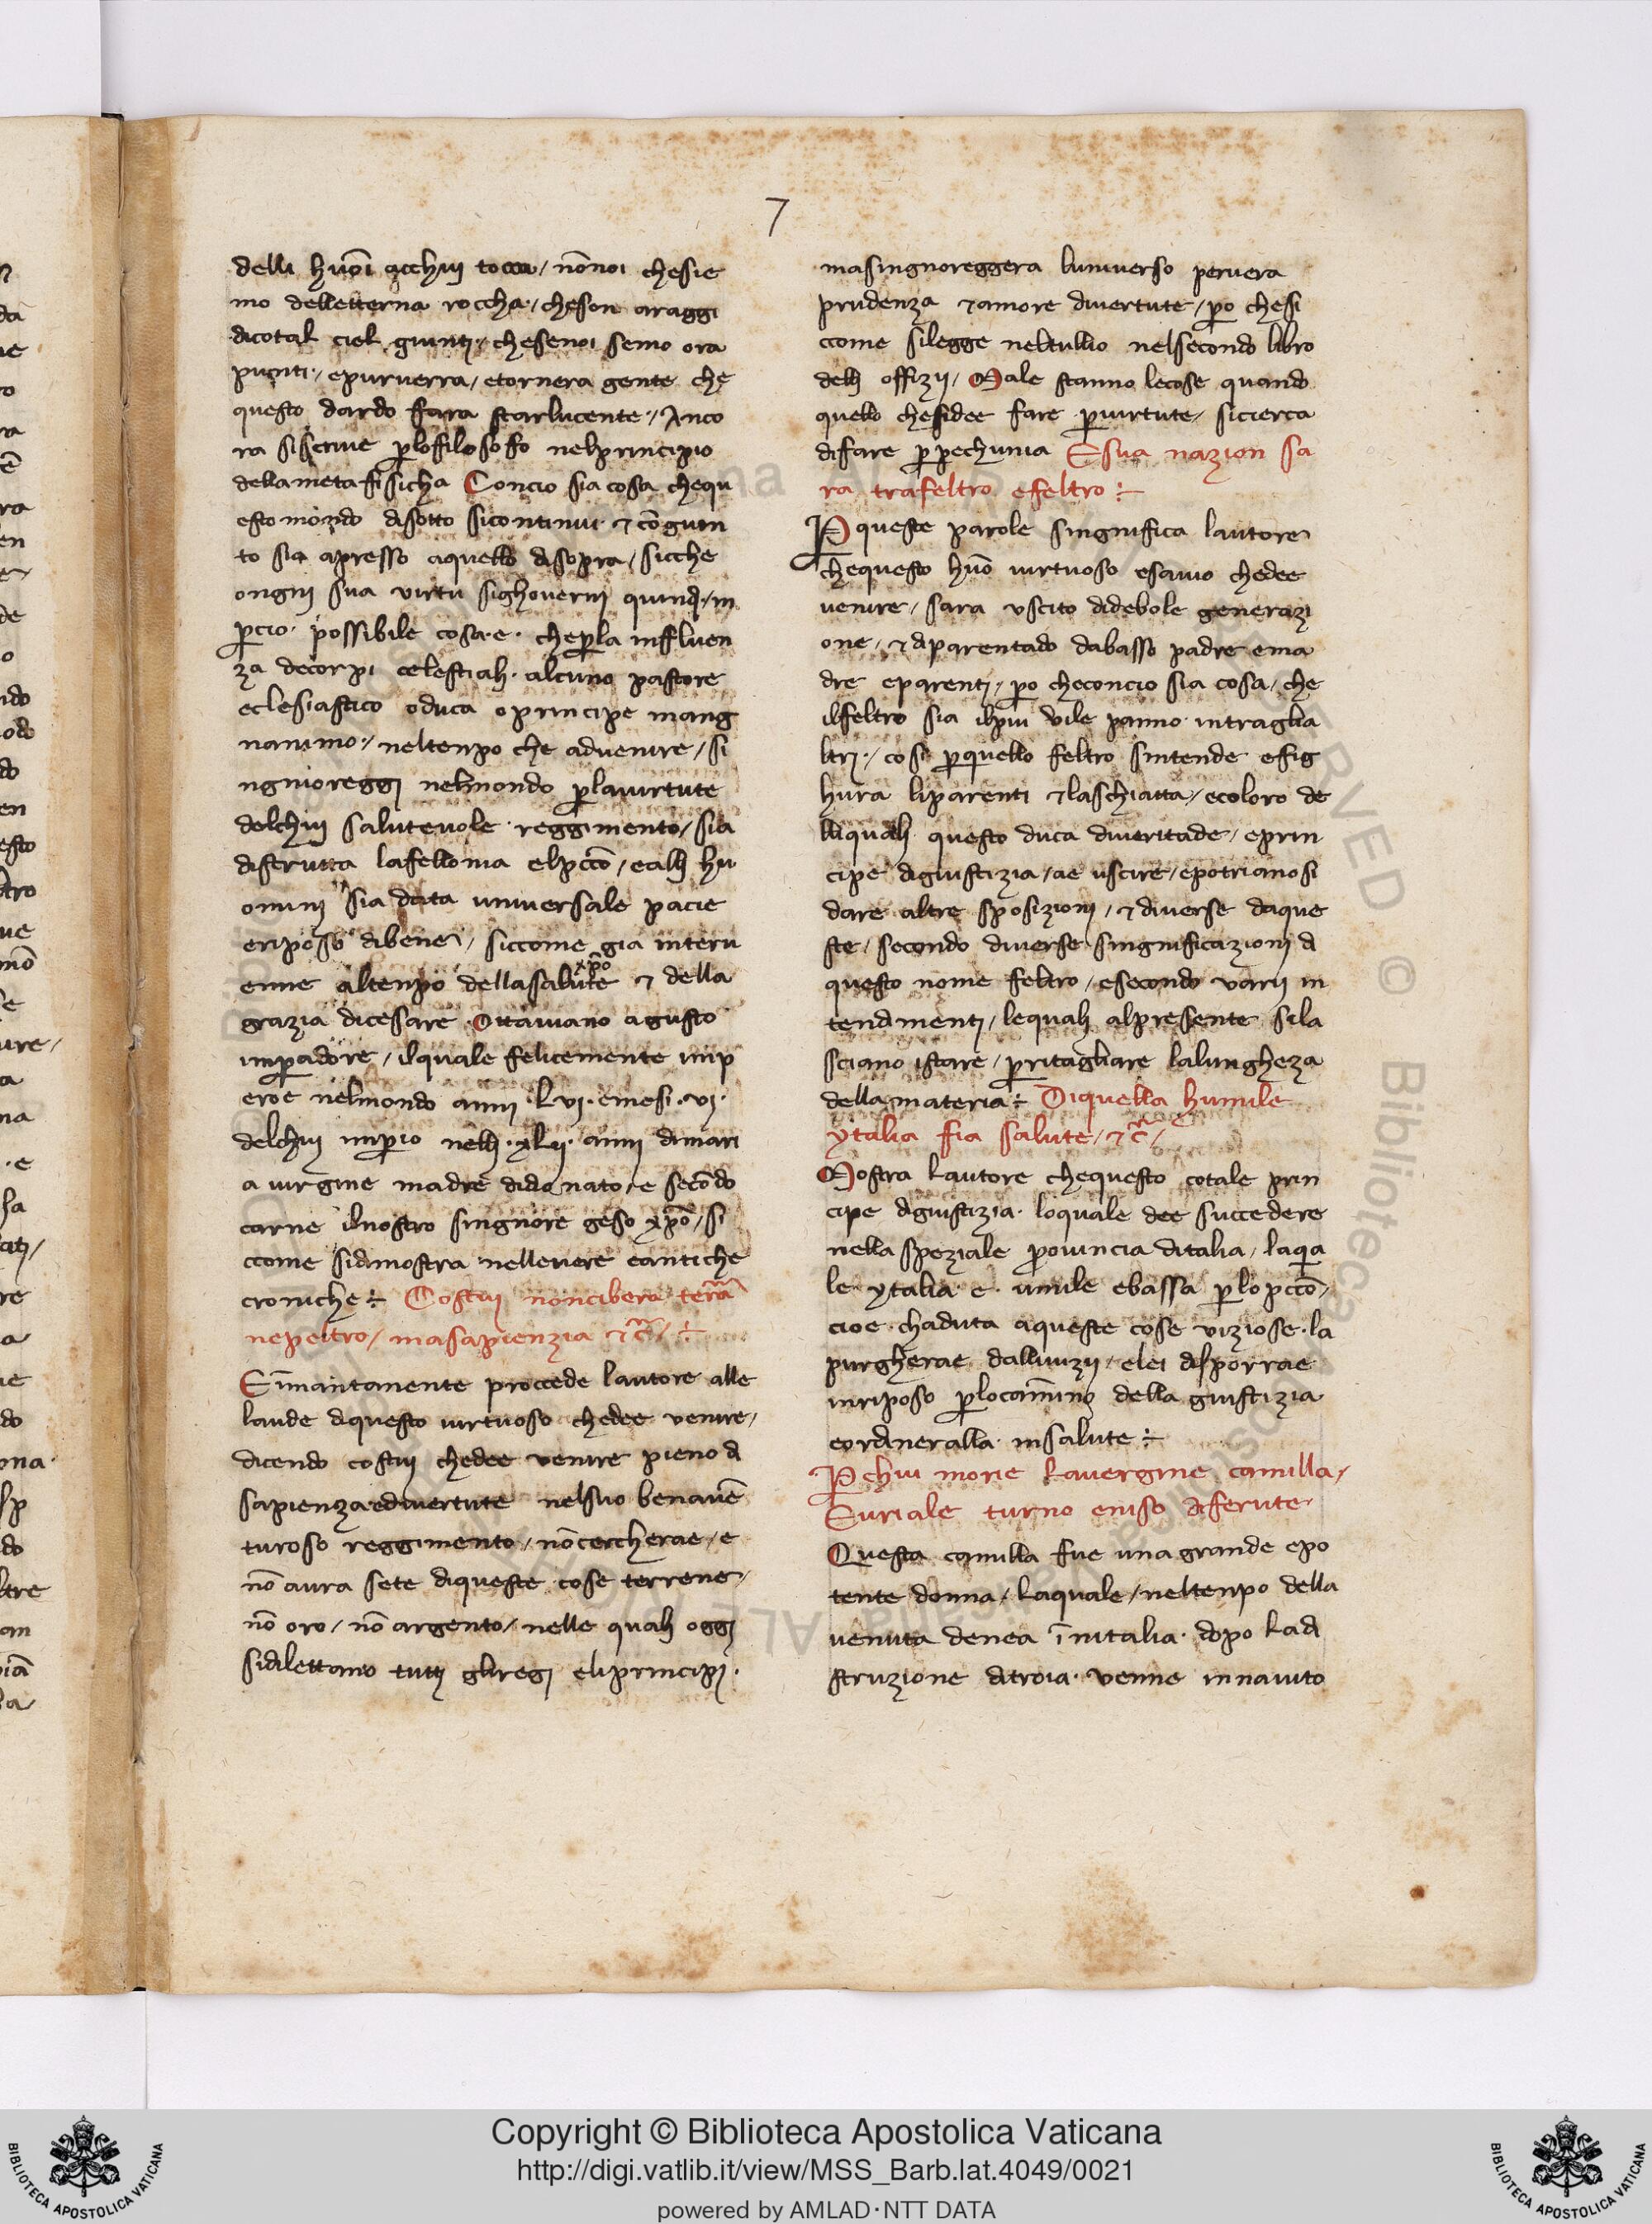 7
delli huōi acchuj tocca / nōnoi chesie
mo delletterna roccha / cheson araggi
dicotal ciel giuntj / chesenoi semo ora
punti / epuruerra / etornera gente che
questo dardo fara starlucente / Anco
ra siscriue p̱lofilosofo nelprincipio
dellametafisicha Concio sia cosa chequ
estomondo disotto sicontinui ⁊ cōgiun
to sia apresso aquello disopra / sicche
ongnj sua virtu sighouernj quindj / in
p̱cio · possibile cosa · e · chep̱la influen
za decorpi celestiali · alcuno pastore
eclesiastico oduca oprincipe mang
nanimo / neltenpo che aduenire / si
ngnioreggi nelmondo p̱lauirtute
delchuj saluteuole reggimento / sia
distrutta lafellonia elpccō / ealli hu
ominj sia data uniuersale pacie
eriposso dibene / siccome gia interu
enne altenpo dellasalute ⁊ della
xp̄o
grazia dicessare Ottauiano agusto
imp̱adore / ilquale felicemente imp
eroe nelmondo annj · Lvj · emesi · vj ·
delchuj imp̱io nelli · xLij · annj dimari
a uirgine madre didio nato / e secōdo
carne ilnostro singnore geso xp̄o / si
ccome sidimostra nelleuere eantiche
croniche ÷ Costuj noncibera terra
nepeltro / masapienzia ⁊c̄ / ÷
Eīmantanente proccede lautore alle
laude diquesto uirtuoso chedee uenire /
dicendo costuj chedee uenire pieno di
sapienza ediuertute nelsuo benauē
turoso reggimento / nōcercherae / e
nō aura sete diqueste cose terrene /
nō oro / nō argento / nelle quali oggj
sidilettano tuttj gliregj eliprincipj ·
masingnoreggera luniuerso peruera
prudenza ⁊amore diuertute / p̱o chesi
ccome silegge neltullio nelsecondo libro
delli offizij / Male stanno lecose quando
quello chesidee fare p̱uirtute / sicierca
difare p̱ pechunia Esua nazion sa
ra trafeltro efeltro ÷
P̱ queste parole singnifica lautore
chequesto huō uirtuoso esauio chedee
uenire / sara vscito didebole generazi
one / ⁊diparentado dabasso padre ema
dre eparentj / p̱o checoncio sia cosa / che
ilfeltro sia ilpiu vile panno intraglia
ltrj / cosi p̱quello feltro sintende efig
hura liparenti ⁊laschiatta / ecoloro de
lliquali questo duca diueritade / eprin
cipe digiustizia / ae uscire / epotrianosi
dare altre sposizionj / ⁊diuerse daque
ste / secondo diuerse singnificazionj di
questo nome feltro / esecondo varij in
tendimentj / lequali alpresente sila
sciano istare / p̱ritagliare lalungheza
della materia ÷ Diquella humile
ytalia fia salute / ⁊c̄ /
Mostra lautore chequesto cotale prin
cipe digiustizia · loquale dee succedere
nella speziale p̱ouincia ditalia / laqua
le ytalia · e · umile ebassa p̱lo pccō /
cioe chaduta aqueste cose viziose · la
purgherae dalliuizij / elei disporrae
inriposo p̱locamīno della giustizia
eordineralla insalute ÷
P̱ chui morie lauergine camilla /
Eurialе turno eniso diferute ·
Questa camilla fue una grande epo
tente donna / laquale / neltenpo della
uenuta denea īnitalia · dopo ladi
struzione ditroia · venne innaiuto
Copyright © Biblioteca Apostolica Vaticana
http://digi.vatlib.it/view/MSS_Barb.lat.4049/0021
powered by AMLAD·NTT DATA
BIBLIOTECA APOSTOLICA VATICANA
BIBLIOTECA APOSTOLICA VATICANA